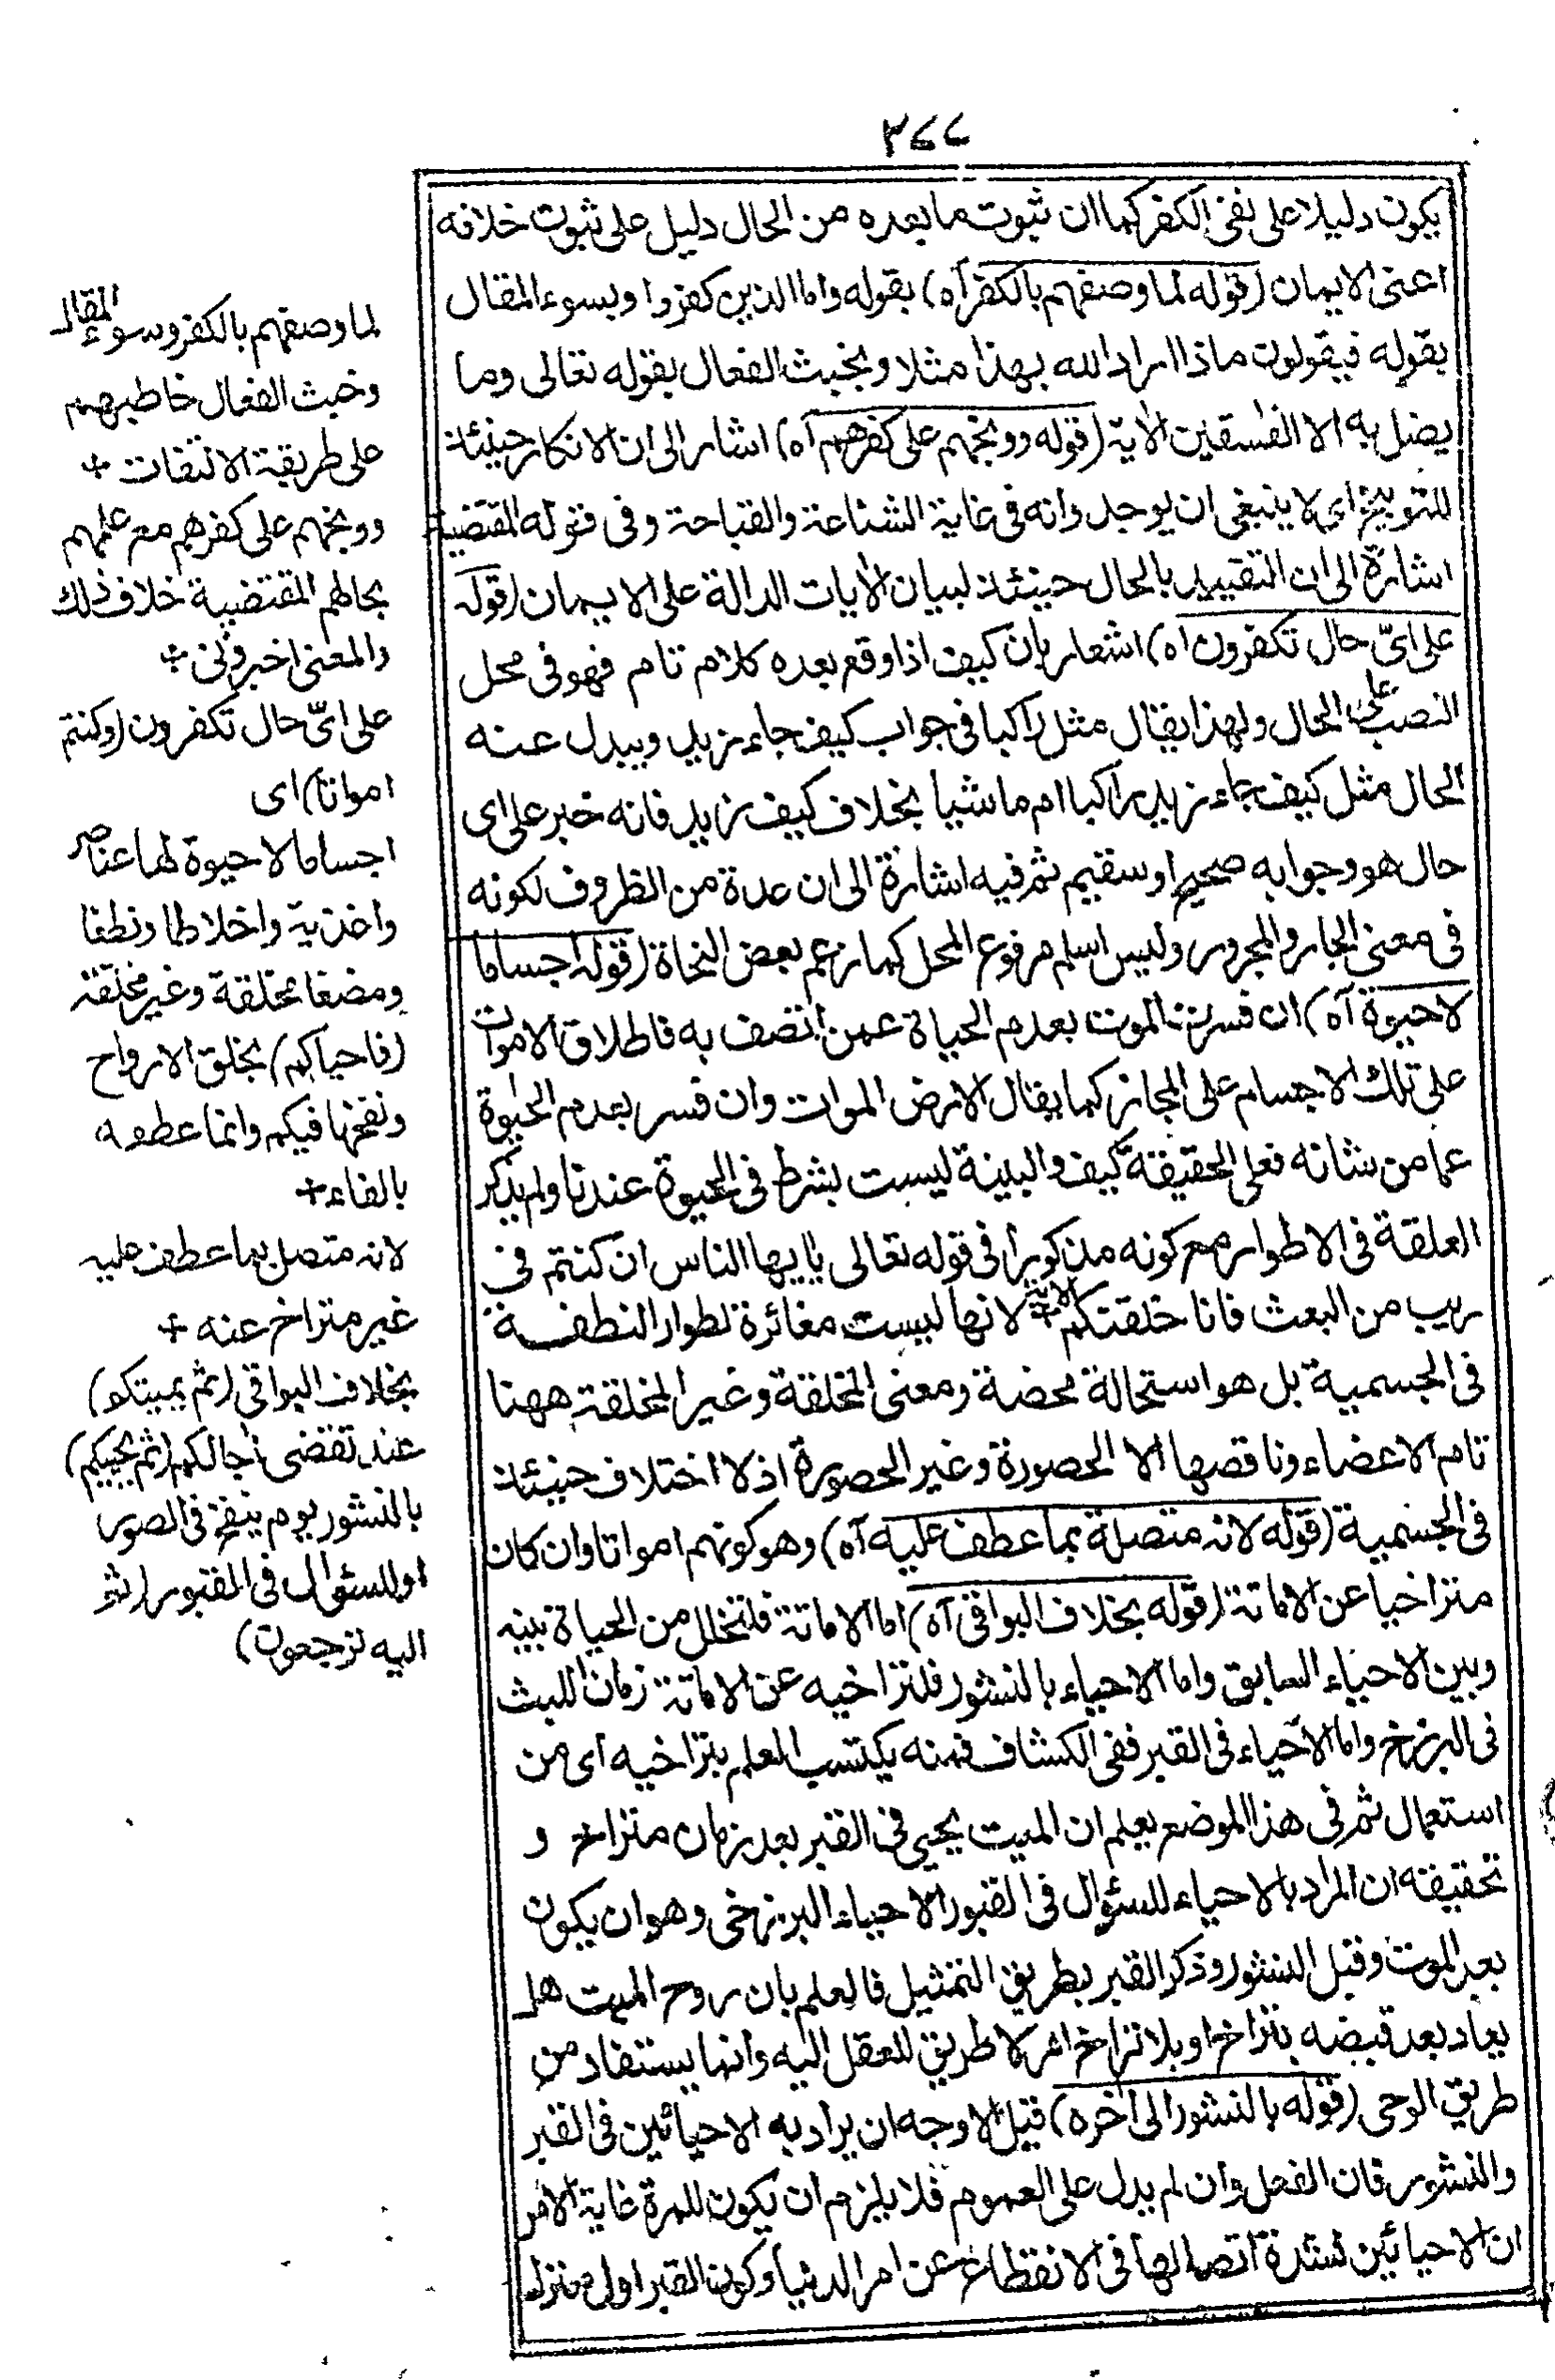 ٣٧٧
يكون دليلا على نفى الكفر كما ان ثبوت ما بعده من الحال دليل على ثبوت خلافه
اعنى الايمان (قوله لما وصفهم بالكفر آه) بقوله واما الذين كفروا وبسوء المقال
بقوله فيقولون ماذا اراد الله بهذا مثلا وبخبث الفعال بقوله تعالى وما
يضل به الا الفٰسقين الآية (قوله ووبخهم على كفرهم آه) اشار الى ان الانكار حينئذ
للتوبيخ اى لا ينبغى ان يوجد وانه فى غاية الشناعة والقباحة وفى قوله المقتضية
اشارة الى ان التقييد بالحال حينئذ لبيان الآيات الدالة على الايمان (قوله
على اىّ حال تكفرون اه) اشعار بان كيف اذا وقع بعده كلام تام فهو فى محل
النصب على الحال ولهذا يقال مثل راكبا فى جواب كيف جاء زيد ويبدل عنه
الحال مثل كيف جاء زيد راكبا ام ماشيا بخلاف كيف زيد فانه خبر على اى
حال هو وجوابه صحيح او سقيم ثم فيه اشارة الى ان عدة من الظروف لكونه
فى معنى الجار والمجرور وليس اسلم مرفوع المحل كما زعم بعض النحاة (قوله اجساما
لا حيوة آه) ان فسرت الموت بعدم الحياة عمن اتصف به فاطلاق الاموات
على تلك الاجسام على المجاز كما يقال الارض الموات وان فسر بعدم الحيوة
عما من شانه فعلى الحقيقة كيف والبينة ليست بشرط فى الحيوة عندنا ولم يذكر
العلقة فى الاطوار مع كونه مذكورا فى قوله تعالى يٰايها الناس ان كنتم فى
ريب من البعث فانا خلقتكم الآية لانها ليست مغائرة لطوار النطفة
فى الجسمية بل هو استحالة محضة ومعنى المخلقة وغير المخلقة ههنا
تام الاعضاء وناقصها الا الحصورة وغير الحصورة اذ لا اختلاف حينئذ
فى الجسمية (قوله لانه متصلة بما عطف عليه آه) وهو كونهم امواتا وان كان
متراخيا عن الاماتة (قوله بخلاف البواقى آه) اما الاماتة فلتخلل من الحياة بينه
وبين الاحياء السابق واما الاحياء بالنشور فلتراخيه عن الاماتة زمان اللبث
فى البرزخ واما الاحياء فى القبر ففى الكشاف فمنه يكتسب العلم بتراخيه اى من
استعمال ثم فى هذا الموضع يعلم ان الميت يحيى فى القبر بعد زمان متراخ و
تحقيقه ان المراد بالاحياء للسئوال فى القبور الاحياء البرزخى وهو ان يكون
بعد الموت وقبل النشور وذكر القبر بطريق التمثيل فالعلم بان روح الميت هل
يعاد بعد قبضه بتراخ او بلا تراخ امر لا طريق للعقل اليه وانما يستفاد من
طريق الوحى (قوله بالنشور الى آخره) قيل الاوجه ان يراد به الاحيائين فى القبر
والنشور فان الفعل وان لم يدل على العموم فلا يلزم ان يكون للمرة غاية الامر
ان الاحيائين لشدة اتصالها فى الانقطاع عن امر الدنيا وكون القبر اول منزلة
لما وصفهم بالكفر وسوء المقال
وخبث الفعال خاطبهم
على طريقة الالتفات +
ووبخهم على كفرهم مع علمهم
بحالهم المقتضية خلاف ذلك
والمعنى اخبرونى +
على اىّ حال تكفرون (وكنتم
امواتا) اى
اجساما لا حيوة لها عناصر
واغذية واخلاطا ونطفا
ومضغا مخلقة وغير مخلقة
(فاحياكم) بخلق الارواح
ونفخها فيكم وانما عطفه
بالفاء +
لانه متصل بما عطف عليه
غير متراخ عنه +
بخلاف البواقى (ثم يميتكم)
عند تقضى آجالكم (ثم يحييكم)
بالنشور يوم ينفخ فى الصور
او للسئوال فى القبور (ثم
اليه ترجعون)